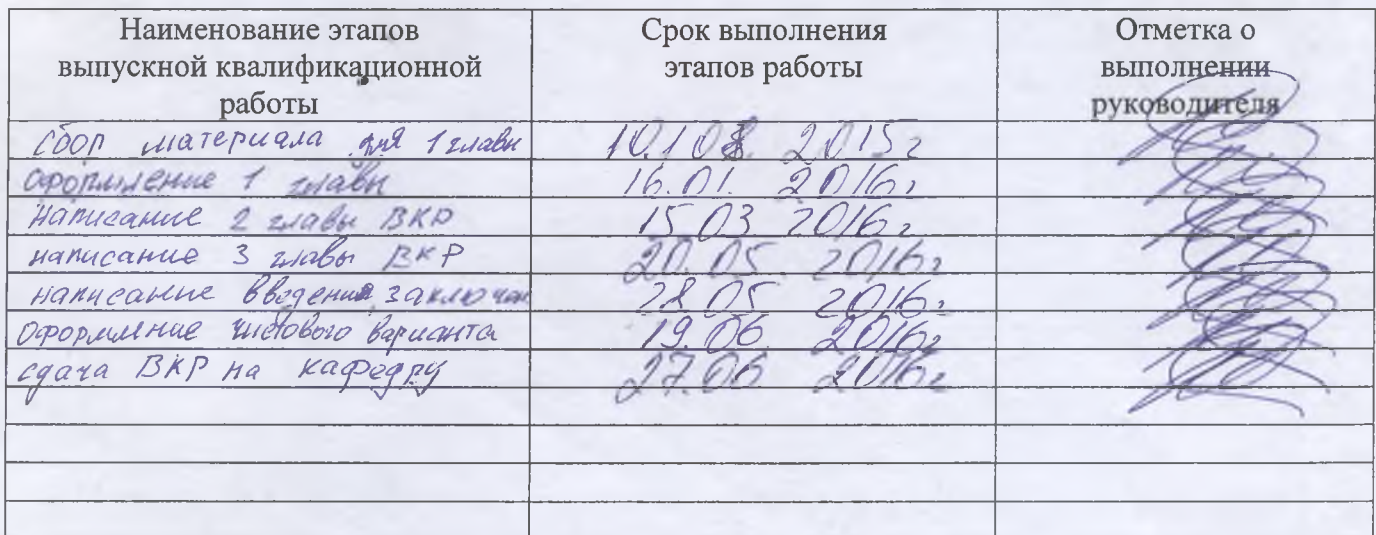 Наименование этапов
выпускной квалификационной
работы
Срок выполнения
этапов работы
Отметка о
выполнении
руководителя
сбор материала для 1 главы
2015г
оформление 1 главы 16.01. 2016г
написание 2 главы ВКР 15.03 2016г
написание 3 главы ВКР 20.05. 2016г
написание введения, заключен 28.05 2016г
оформление чистового варианта 19.06. 2016г
сдача ВКР на кафедру 27.06 2016г